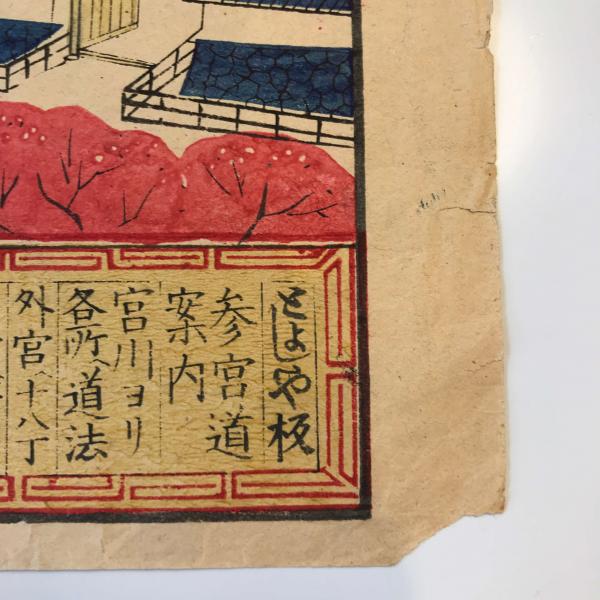 とよや板
参宮道
案内
宮川ヨリ
各所ヘ道法
外宮ヘ十八丁